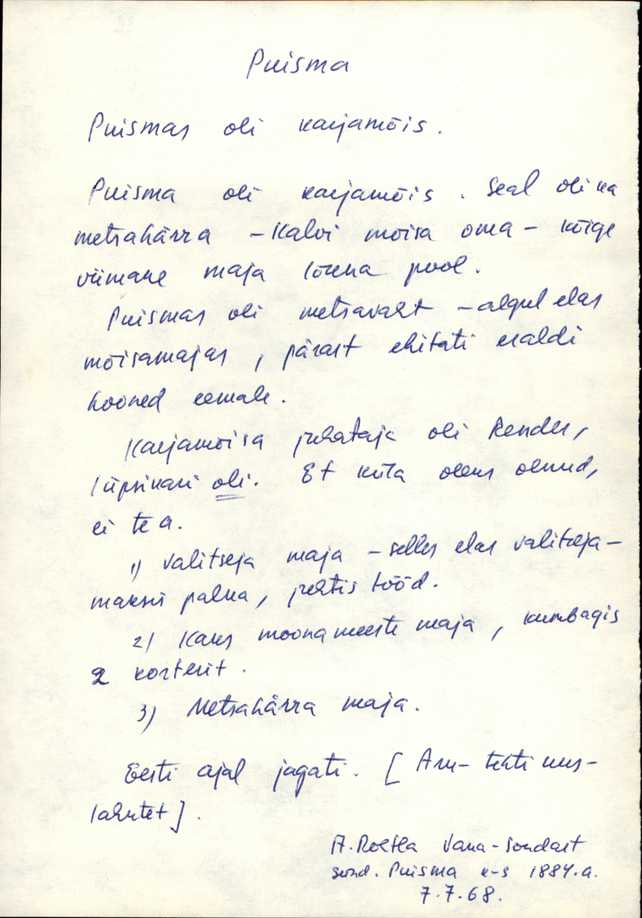 Puisma
Puismas oli karjamõis.
Puisma oli karjamõis. Seal oli ka
metsahärra – Kalvi mõisa oma – kõige
viimane maja lõuna pool.
Puismas oli metsavaht – algul elas
mõisamajas, pärast ehitati eraldi
hooned eemale.
Karjamõisa juhataja oli Render,
lüpsikari oli. Et küla oleks olnud,
ei tea.
1) Valitseja maja – selles elas valitseja –
maksis palka, juhtis tööd.
2) Kaks moonameeste maja, kumbagis
2 korterit.
3) Metsahärra maja.
Eesti ajal jagati. [Aru- tehti uus-
talutet].
A. Roetla Vana-Sondast
sünd. Puisma k-s 1884.a.
7.7.68.